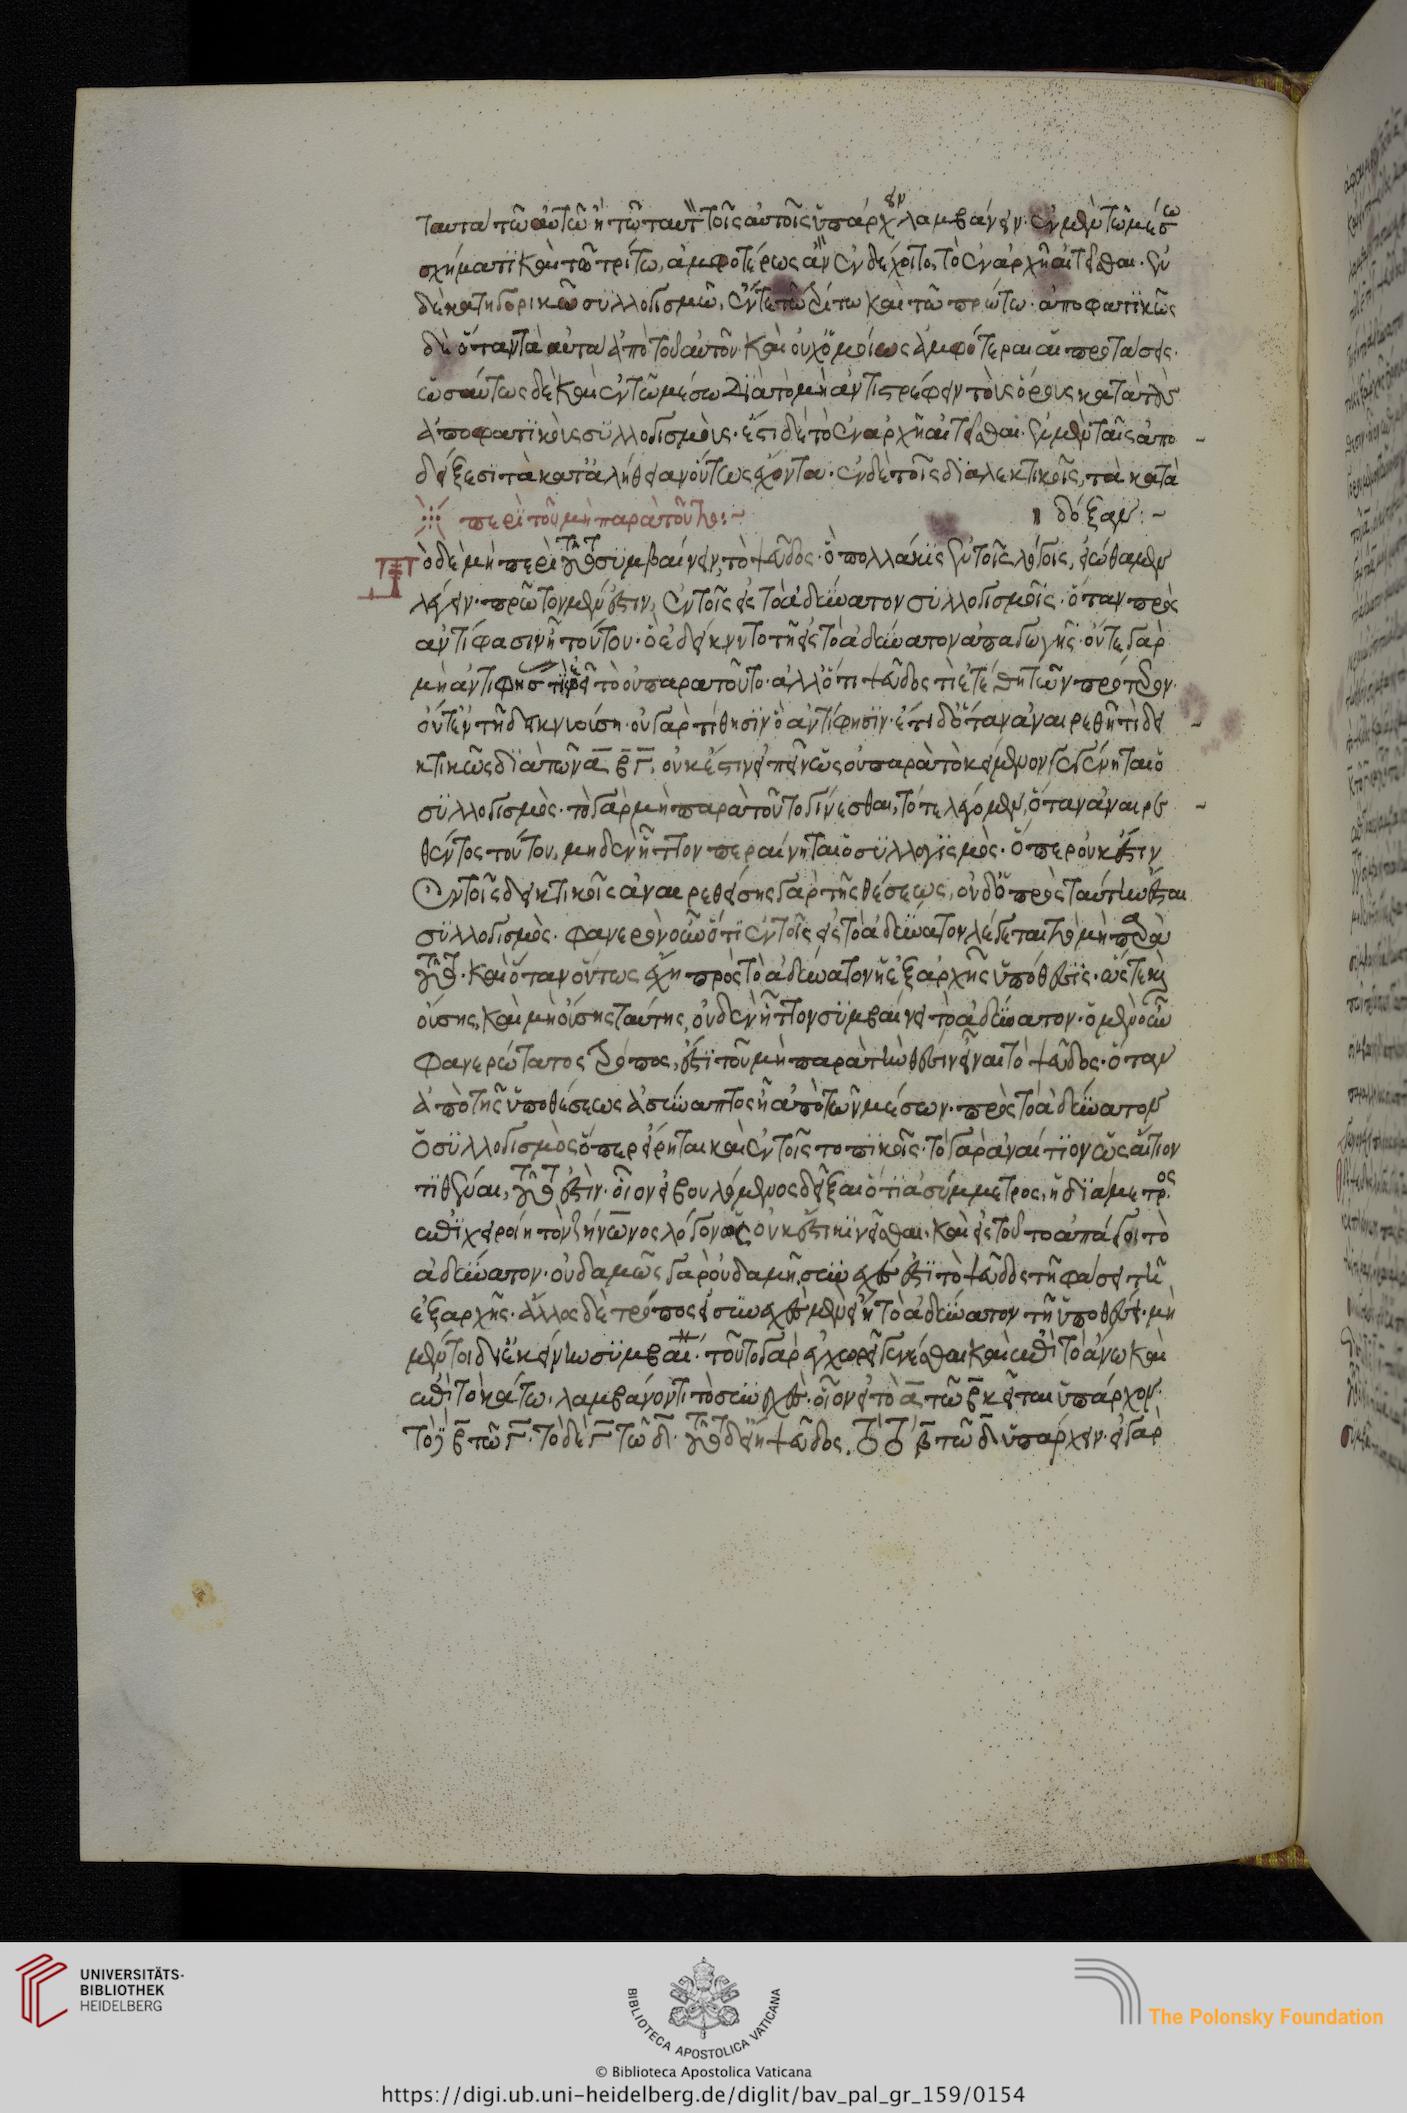 ταυτὰ τῶ αὐτῶ ἢ τῶ ταυτὸν τοῖς αὐτοῖς ὑπάρχειν λαμβάνειν· ἐν μὲν τῶ μέσω
σχήματι καὶ τῶ τρίτω, ἀμφοτέρως ἂν ἐνδέχοιτο, τὸ ἐν ἀρχῆ αἰτεῖσθαι· ἐν
δὲ κατηγορικῶ συλλογισμῶ, ἔν τε τῶ τρίτω καὶ τῶ πρώτω· ἀποφατικῶς
δὲ ὅταν τὰ αὐτὰ ἀπὸ τοῦ αὐτοῦ· καὶ οὐχ ὁμοίως ἀμφότεραι αἱ προτάσεις·
ὡσαύτως δὲ καὶ ἐν τῶ μέσω διὰ τὸ μὴ ἀντιστρέφειν τοὺς ὅρους κατὰ τοὺς
ἀποφατικοὺς συλλογισμούς· ἔστι δὲ τὸ ἐν ἀρχῆ αἰτεῖσθαι· ἐν μὲν ταῖς ἀπο
δείξεσι τὰ κατ' ἀλήθειαν οὕτως ἔχοντα· ἐν δὲ τοῖς διαλεκτικοῖς, τὰ κατὰ
δόξαν:~
περὶ τοῦ μὴ παρὰ τοῦτο:~
Τὸ δὲ μὴ περὶ τοῦτο συμβαίνειν, τὸ ψεῦδος· ὃ πολλάκις ἐν τοῖς λόγοις, εἰώθαμεν
λέγειν· πρῶτον μέν ἐστιν, ἐν τοῖς εἰς τὸ ἀδύνατον συλλογισμοῖς· ὅταν πρὸς
ἀντίφασιν ἦ τούτου· ὃ ἐδείκνυτο τῆ εἰς τὸ ἀδύνατον ἀπαγωγῆ· οὔτε γὰρ
μὴ ἀντιφήσας ἐρεῖ τὸ οὐ παρὰ τοῦτο· ἀλλ' ὅτι ψεῦδος τὶ ἐτέθη τῶν πρότερον·
οὔτ' ἐν τῆ δεικνυούση· οὐ γὰρ τίθησιν ὃ ἀντίφησιν· ἔτι δ' ὅταν ἀναιρεθῆ τὶ δει
κτικῶς διὰ τῶν α β γ, οὐκ ἔστιν εἰπεῖν ὡς οὐ παρὰ τὸ κείμενον γεγένηται ὁ
συλλογισμός· τὸ γὰρ μὴ παρὰ τοῦτο γίνεσθαι, τότε λέγομεν, ὅταν ἀναιρε
θέντος τούτου, μηδὲν ἧττον περαίνηται ὁ συλλογισμός· ὅπερ οὐκ ἔστιν
ἐν τοῖς δεικτικοῖς ἀναιρεθείσης γὰρ τῆς θέσεως, οὐδ' ὁ πρὸς ταύτην ἔσται
συλλογισμός· φανερὸν οὖν ὅτι ἐν τοῖς εἰς τὸ ἀδύνατον λέγεται τὸ μὴ παρὰ
τοῦτο· καὶ ὅταν οὕτως ἔχη πρὸς τὸ ἀδύνατον ἡ ἐξ ἀρχῆς ὑπόθεσις· ὥστε καὶ
οὔσης, καὶ μὴ οὔσης ταύτης, οὐδὲν ἧττον συμβαίνει τὸ ἀδύνατον· ὁ μὲν οὖν
φανερώτατος τρόπος, ἐστὶ τοῦ μὴ παρὰ τὴν θέσιν εἶναι τὸ ψεῦδος· ὅταν
ἀπὸ τῆς ὑποθέσεως ἀσύναπτος ἦ ἀπὸ τῶν μέσων· πρὸς τὸ ἀδύνατον
ὁ συλλογισμὸς ὅπερ εἴρηται καὶ ἐν τοῖς τοπικοῖς· τὸ γὰρ ἀναίτιον ὡς αἴτιον
τιθέναι, τοῦτό ἐστιν· οἷον εἰ βουλόμενος δεῖξαι ὅτι ἀσύμμετρος, ἡ διάμετρος
ἐπιχειροίη τὸν ζήνωνος λόγον ὡς οὐκ ἔστι κινεῖσθαι· καὶ εἰς τοῦτο ἀπάγοι τὸ
ἀδύνατον· οὐδαμῶς γὰρ οὐδαμῆ συνεχές ἐστι τὸ ψεῦδος τῆ φάσει τῆ
ἐξ ἀρχῆς· ἄλλος δὲ τρόπος εἰ συνεχὲς μὲν εἴη τὸ ἀδύνατον τῆ ὑποθέσει· μὴ
μέντοι δι' ἐκείνην συμβαίνει· τοῦτο γὰρ ἐγχωρεῖ γενέσθαι καὶ ἐπὶ τὸ ἄνω καὶ
ἐπὶ τὸ κάτω, λαμβάνοντι τὸ συνεχές· οἷον εἰ τὸ α τῶ β κεῖται ὑπάρχον·
τὸ δὲ β τῶ γ· τὸ δὲ γ τῶ δ· τοῦτο δ' εἴη ψεῦδος, τὸ τὸ β τῶ δ ὑπάρχειν· εἰ γὰρ
UNIVERSITÄTS-
BIBLIOTHEK
HEIDELBERG
BIBLIOTECA APOSTOLICA VATICANA
The Polonsky Foundation
© Biblioteca Apostolica Vaticana
https://digi.ub.uni-heidelberg.de/diglit/bav_pal_gr_159/0154